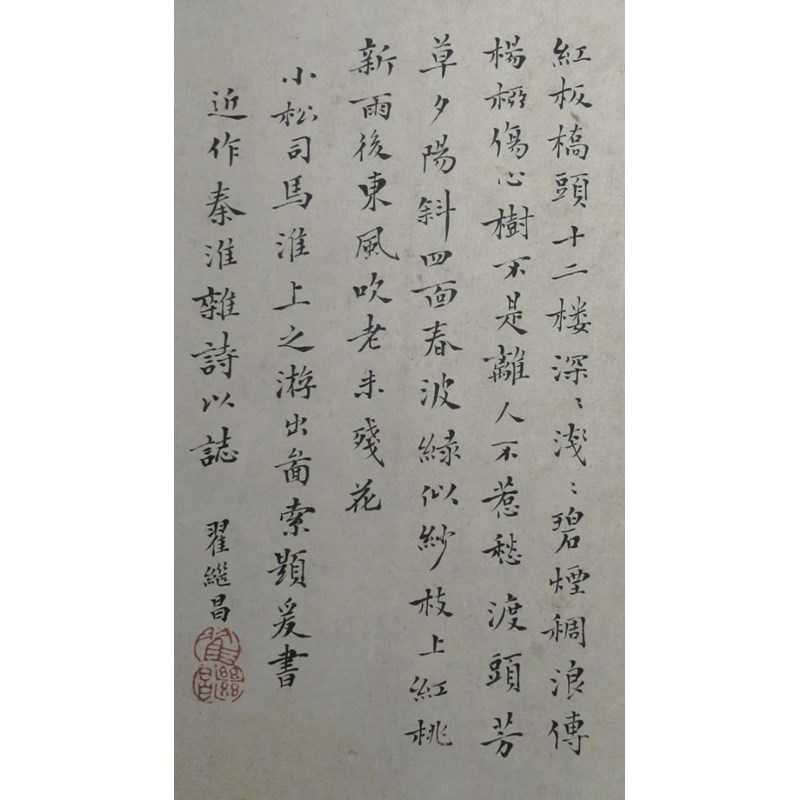 紅板橋頭十二楼深〻浅〻碧煙稠浪傳
楊栁傷心樹不是離人不惹愁渡頭芳
草夕陽斜四面春波緑似紗枝上紅桃
新雨後東風吹老未殘花
小松司馬淮上之游出啚索題爰書
近作秦淮雜詩以誌
翟継昌
翟繼昌